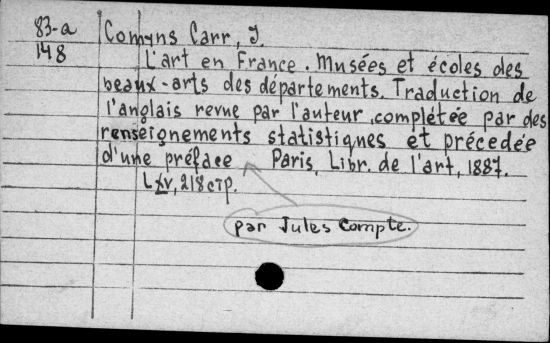 83-a Comyns Carr, J.
148 L'art en France. Musées et écoles des
beaux-arts des départements. Traduction de
l'anglais revue par l'auteur, complétée par des
renseignements statistiques et précedée
d'une préface Paris, Libr. de l'art, 1887.
LXV, 218 стр.
par Jules Compte.